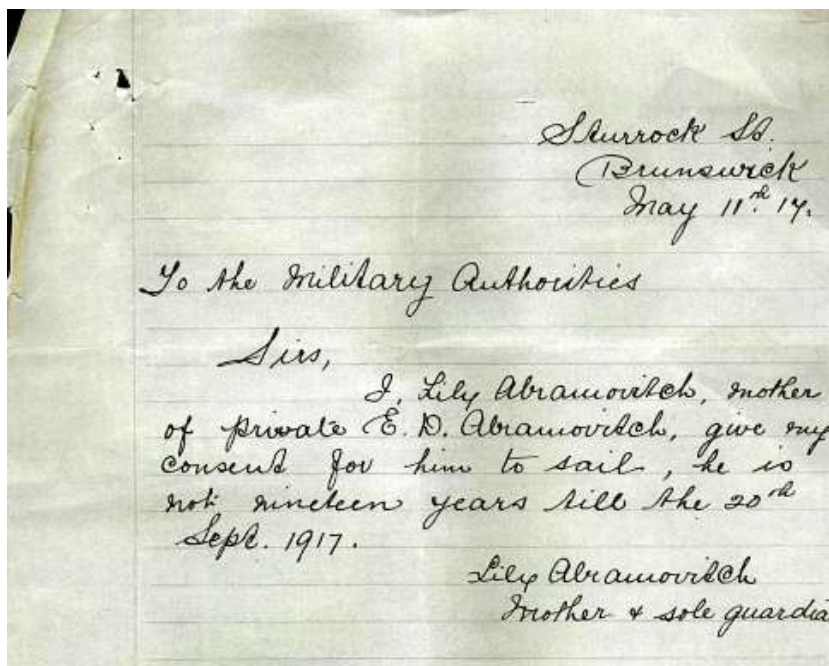 Sturrock St.
Brunswick
May 11th. 17.
To the Military Authorities
Sirs,
I, Lily Abramovitch, mother
of private E. D. Abramovitch, give my
consent for him to sail, he is
not nineteen years till the 20th
Sept. 1917.
Lily Abramovitch
Mother & sole guardia